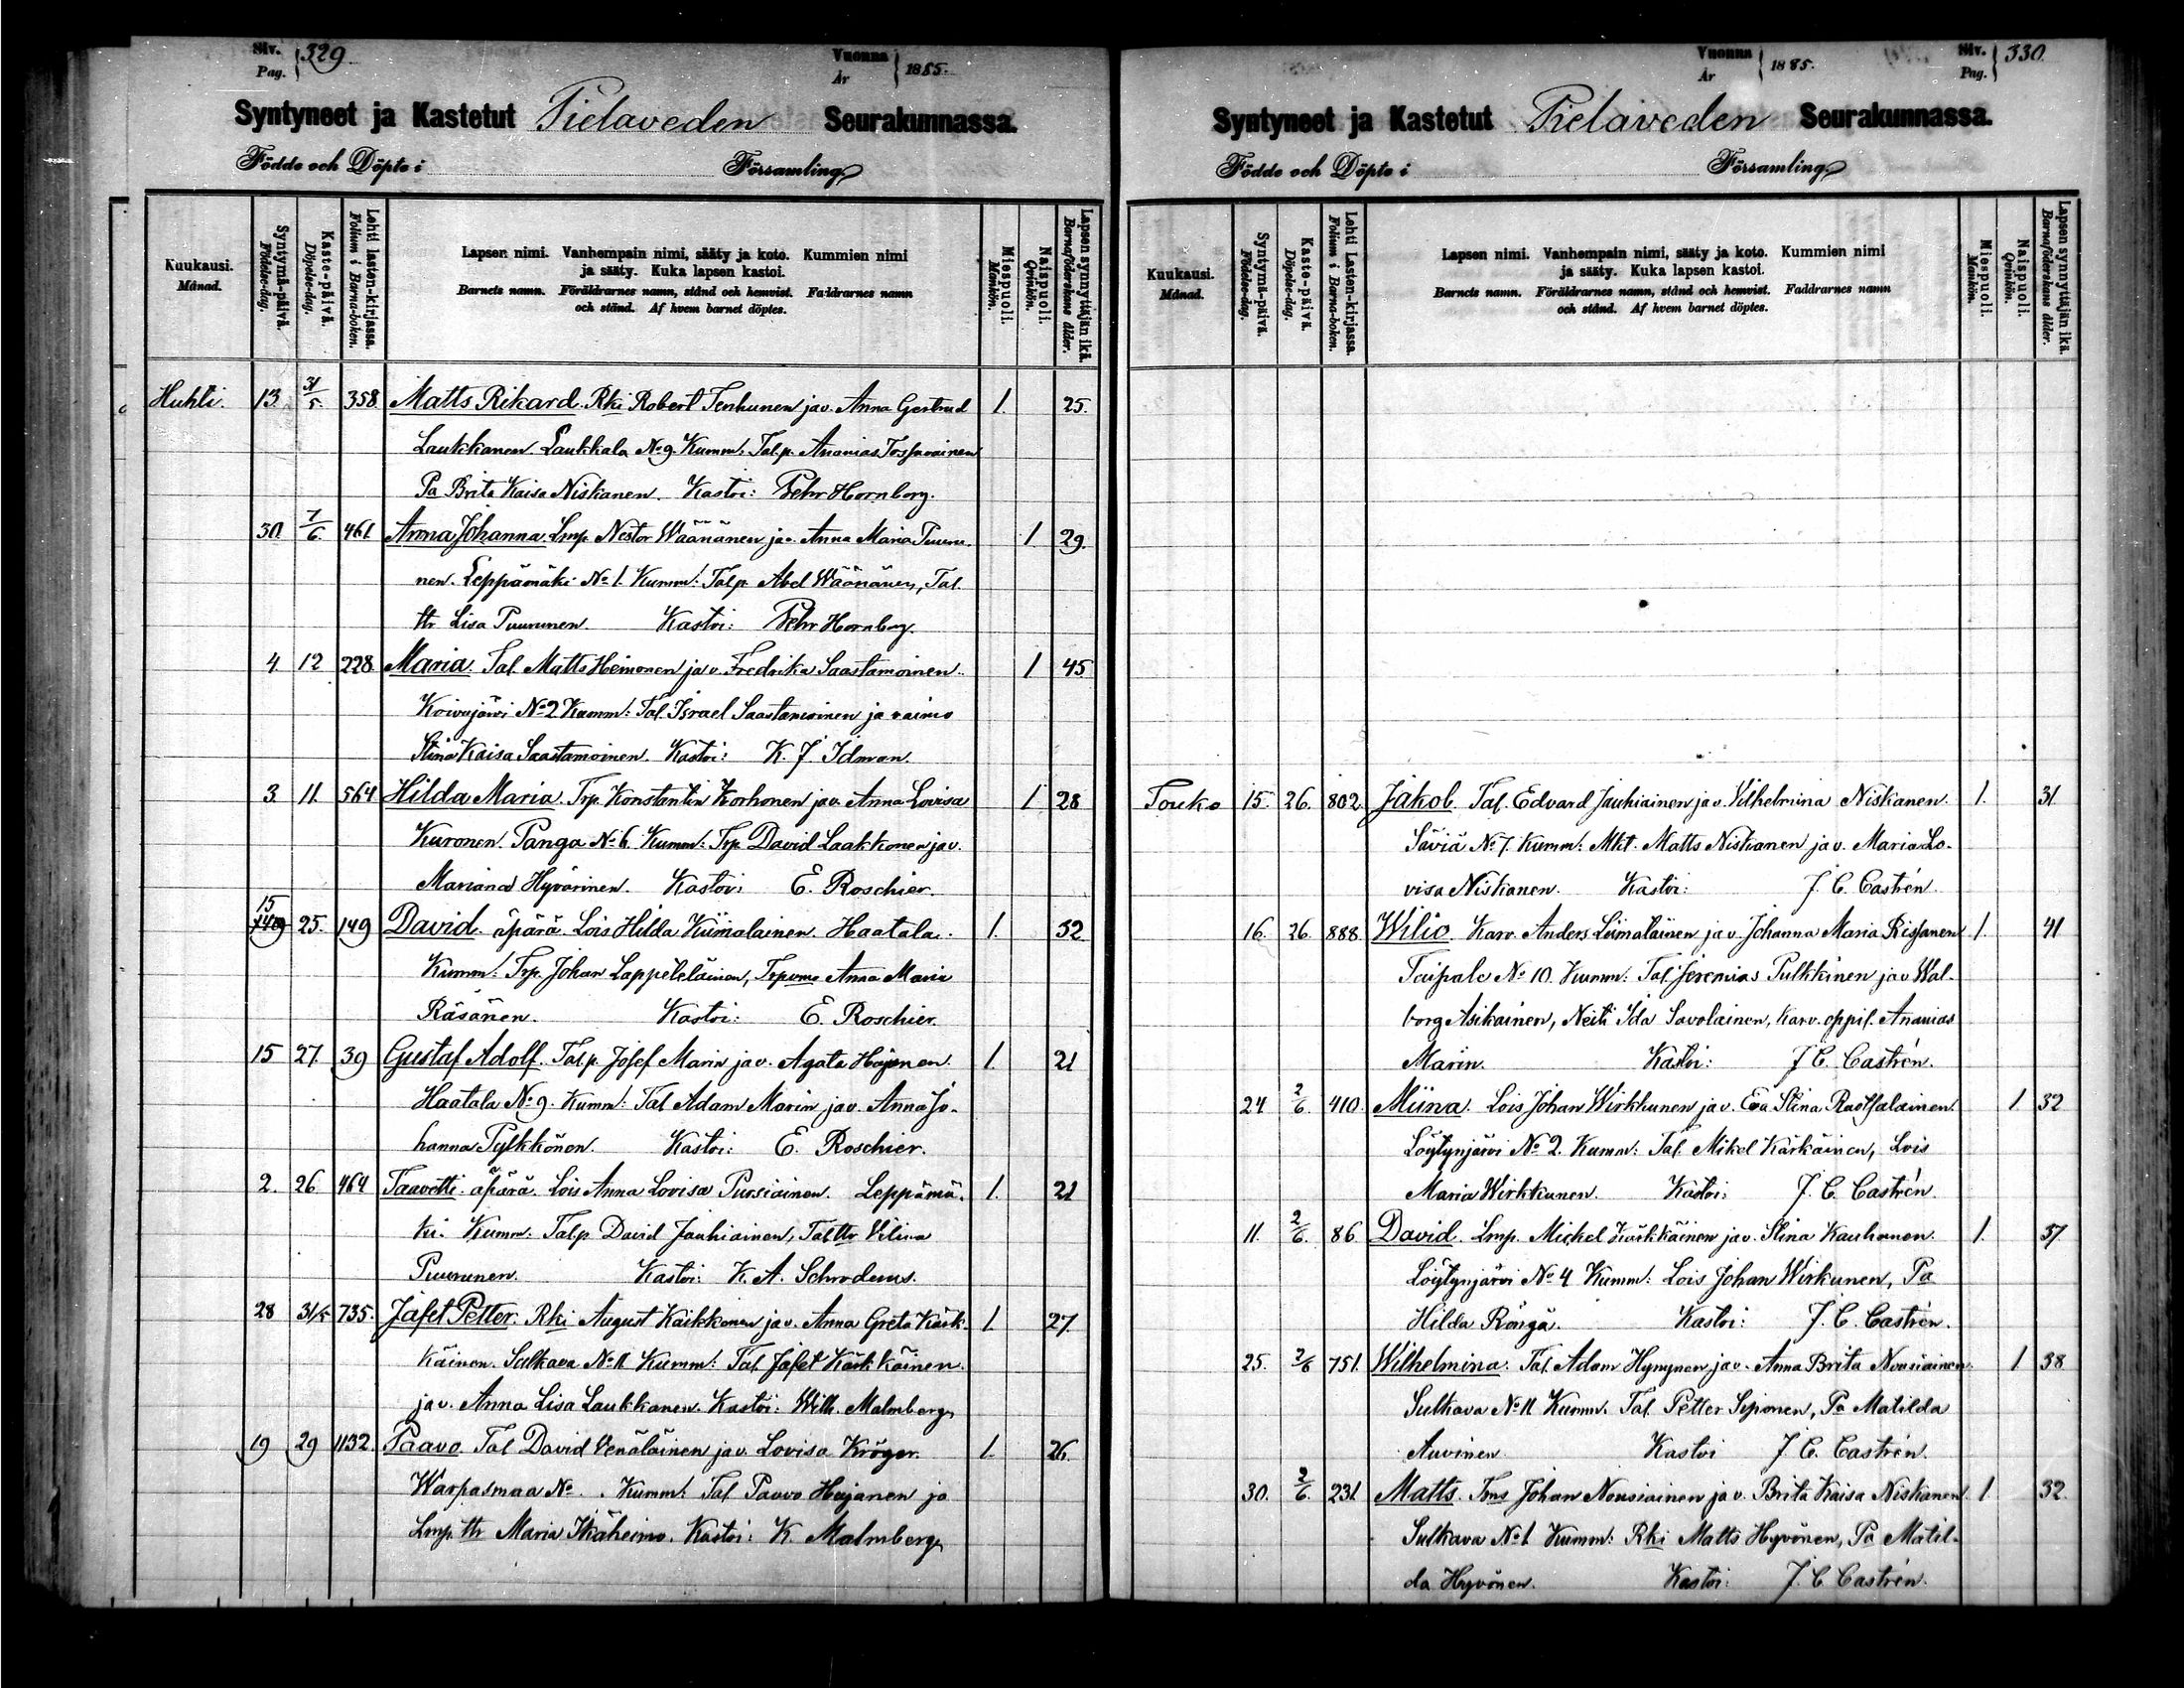 Siv. Pag. 329
Vuonna År 1885.
Syntyneet ja Kastetut Pielaveden Seurakunnassa.
Födde och Döpte i Församling
Kuukausi. Månad.
Syntymä-päivä. Födelse-dag.
Kaste-päivä. Döpelse-dag.
Lehti lasten-kirjassa. Folium i Barna-boken.
Lapsen nimi. Vanhempain nimi, sääty ja koto. Kummien nimi
ja sääty. Kuka lapsen kastoi.
Barnets namn. Föräldrarnes namn, stånd och hemvist. Faddrarnes namn
och stånd. Af hvem barnet döptes.
Miespuoli. Mankön.
Naispuoli. Qvinkön.
Lapsen synnyttäjän ikä. Barnaföderskans ålder.
Huhti. 13. 31/5. 358 Matts Rikard. Rki Robert Tenhunen ja v. Anna Gertrud 1. 25.
Laukkanen. Laukkala No 9. Kumm: Talp. Ananias Tossavainen
Pa Brita Kaisa Niskanen. Kastoi: Pehr Hornborg.
30. 7/6. 461 Anna Johanna. Lmp. Nestor Wäänänen ja v. Anna Maria Puuru- 1. 29.
nen. Leppämäki No 1. Kumm: Talp. Abel Wäänänen, Tal.
ttr Lisa Puurunen. Kastoi: Pehr Hornborg.
4. 12 228 Maria. Tal. Matts Heimonen ja v. Fredrika Saastamoinen. 1 45
Koivujärvi No 2 Kumm: Tal. Israel Saastamoinen ja vaimo
Stina Kaisa Saastamoinen. Kastoi: K. J. Idman.
3. 11. 564 Hilda Maria. Trp. Konstantin Korhonen ja v. Anna Lovisa 1 28
Kuronen. Panga No 6. Kumm: Trp. David Laakkonen ja v.
Mariana Hyvärinen. Kastoi: E. Roschier.
15 149 25. 149 David. äpärä. Lois Hilda Kiimalainen. Haatala. 1. 32
Kumm: Trp. Johan Lappeteläinen, Trpvmo Anna Maria
Räsänen. Kastoi: E. Roschier.
15 27. 39 Gustaf Adolf. Talp. Josef Marin ja v. Agata Hajanen. 1. 21
Haatala No 9. Kumm: Tal Adam Marin ja v. Anna Jo-
hanna Pylkkönen. Kastoi: E. Roschier.
2. 26 464 Taavetti. äpärä. Lois Anna Lovisa Pursiainen. Leppämä- 1. 21
ki. Kumm: Talp David Jauhiainen, Talttr Vilina
Puurunen. Kastoi: K. A. Schroderus.
28 31/5 735. Jafet Petter. Rki August Kaikkonen ja v. Anna Greta Kärk- 1. 27.
käinen. Sulkava No 11 Kumm: Tal. Jafet Kärkkäinen.
ja v. Anna Lisa Laukkanen. Kastoi: Wilh. Malmberg
19 29 1132 Paavo. Tal David Venäläinen ja v. Lovisa Kröger. 1. 26.
Warpasmaa No . Kumm: Tal Paavo Hajanen ja
Lmp. ttr Maria Ikäheimo. Kastoi: K. Malmberg
Vuonna År 1885.
Siv. Pag. 330.
Syntyneet ja Kastetut Pielaveden Seurakunnassa.
Födde och Döpte i Församling
Kuukausi. Månad.
Syntymä-päivä. Födelse-dag.
Kaste-päivä. Döpelse-dag.
Lehti Lasten-kirjassa. Folium i Barna-boken.
Lapsen nimi. Vanhempain nimi, sääty ja koto. Kummien nimi
ja sääty. Kuka lapsen kastoi.
Barnets namn. Föräldrarnes namn, stånd och hemvist. Faddrarnes namn
och stånd. Af hvem barnet döptes.
Miespuoli. Mankön.
Naispuoli. Qvinkön.
Lapsen synnyttäjän ikä. Barnaföderskans ålder.
Touko 15. 26. 802 Jakob. Tal. Edvard Jauhiainen ja v. Vilhelmina Niskanen. 1. 31.
Säviä No 7. Kumm: Mkt. Matts Niskanen ja v. Maria Lo-
visa Niskanen. Kastoi: J. C. Castrén.
16. 26. 888 Wilio. Karv. Anders Liimalainen ja v. Johanna Maria Rissanen 1. 41
Taipale No 10. Kumm: Tal. Jeremias Pulkkinen ja v Wal-
borg Asikainen, Neiti Ida Savolainen, Karv. oppil. Ananias
Marin. Kastoi: J. C. Castrén.
24 2/6. 410. Miina. Lois Johan Wirkkunen ja v. Eva Stina Raatfalainen. 1. 32
Löytynjärvi No 2. Kumm: Tal. Mikel Kärkäinen, Lois
Maria Wirkkunen. Kastoi: J. C. Castrén.
11. 2/6. 86 David. Lmp. Mickel Kärkkäinen ja v. Stina Kauhanen. 1. 37
Löytynjärvi No 4 Kumm: Lois Johan Wirkunen, Pa
Hilda Röngä. Kastoi: J. C. Castrén.
25. 2/6 751. Wilhelmina. Tal. Adam Hynynen ja v. Anna Brita Nousiainen. 1 38
Sulkava No 11 Kumm. Tal. Petter Siponen, Pa Matilda
Auvinen. Kastoi J. C. Castrén.
30. 2/6. 231 Matts. Tms Johan Nousiainen ja v. Brita Kaisa Niskanen. 1 32.
Sulkava No 1 Kumm: Rki Matts Hyvönen, Pa Matil-
da Hyvönen. Kastoi: J. C. Castrén.